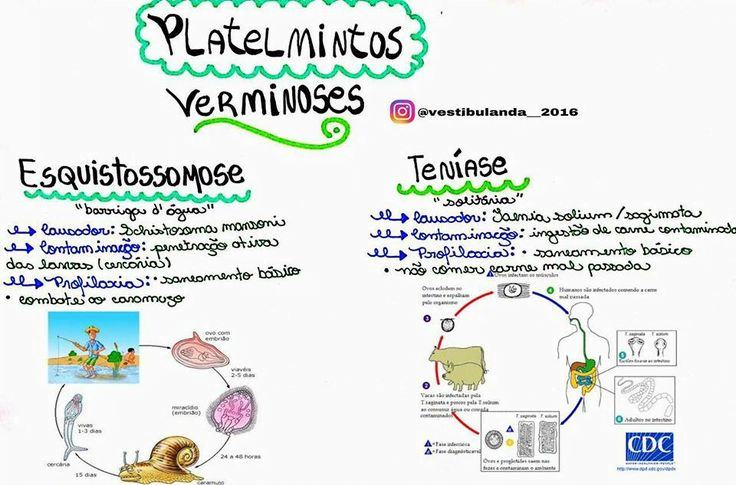 PLATELMINTOS
VERMINOSES
@vestibulanda__2016
ESQUISTOSSOMOSE
"barriga d'água"
Causador: Schistosoma mansoni
Contaminação: penetração ativa
das larvas (cercária)
Profilaxia: • saneamento básico
• combate ao caramujo
ovo com
embrião
viavés
2-5 dias
miracídio
(embrião)
24 a 48 horas
caramujo
15 dias
cercária
vivas
1-3 dias
TENÍASE
"solitária"
Causador: Taenia solium/saginata
Contaminação: ingestão de carne contaminada
Profilaxia: • saneamento básico
• não comer carne mal passada
Ovos infectam os músculos
Ovos eclodem no
intestino e espalham
pelo organismo
3
4
Humanos são infectados comendo a carne
mal passada
T. saginata
T. solium
5
Escólex fixam ao intestino
6
Adultos no intestino
2
Vacas são infectadas pela
T saginata e porcos pela T. solium
ao consumir água ou comida
contaminados
T. saginata
T. solium
1
Ovos e proglotides caem nas
fezes e contaminam o ambiente
= Fase infecciosa
= Fase diagnosticável
CDC
http://www.dpd.cdc.gov/dpdx